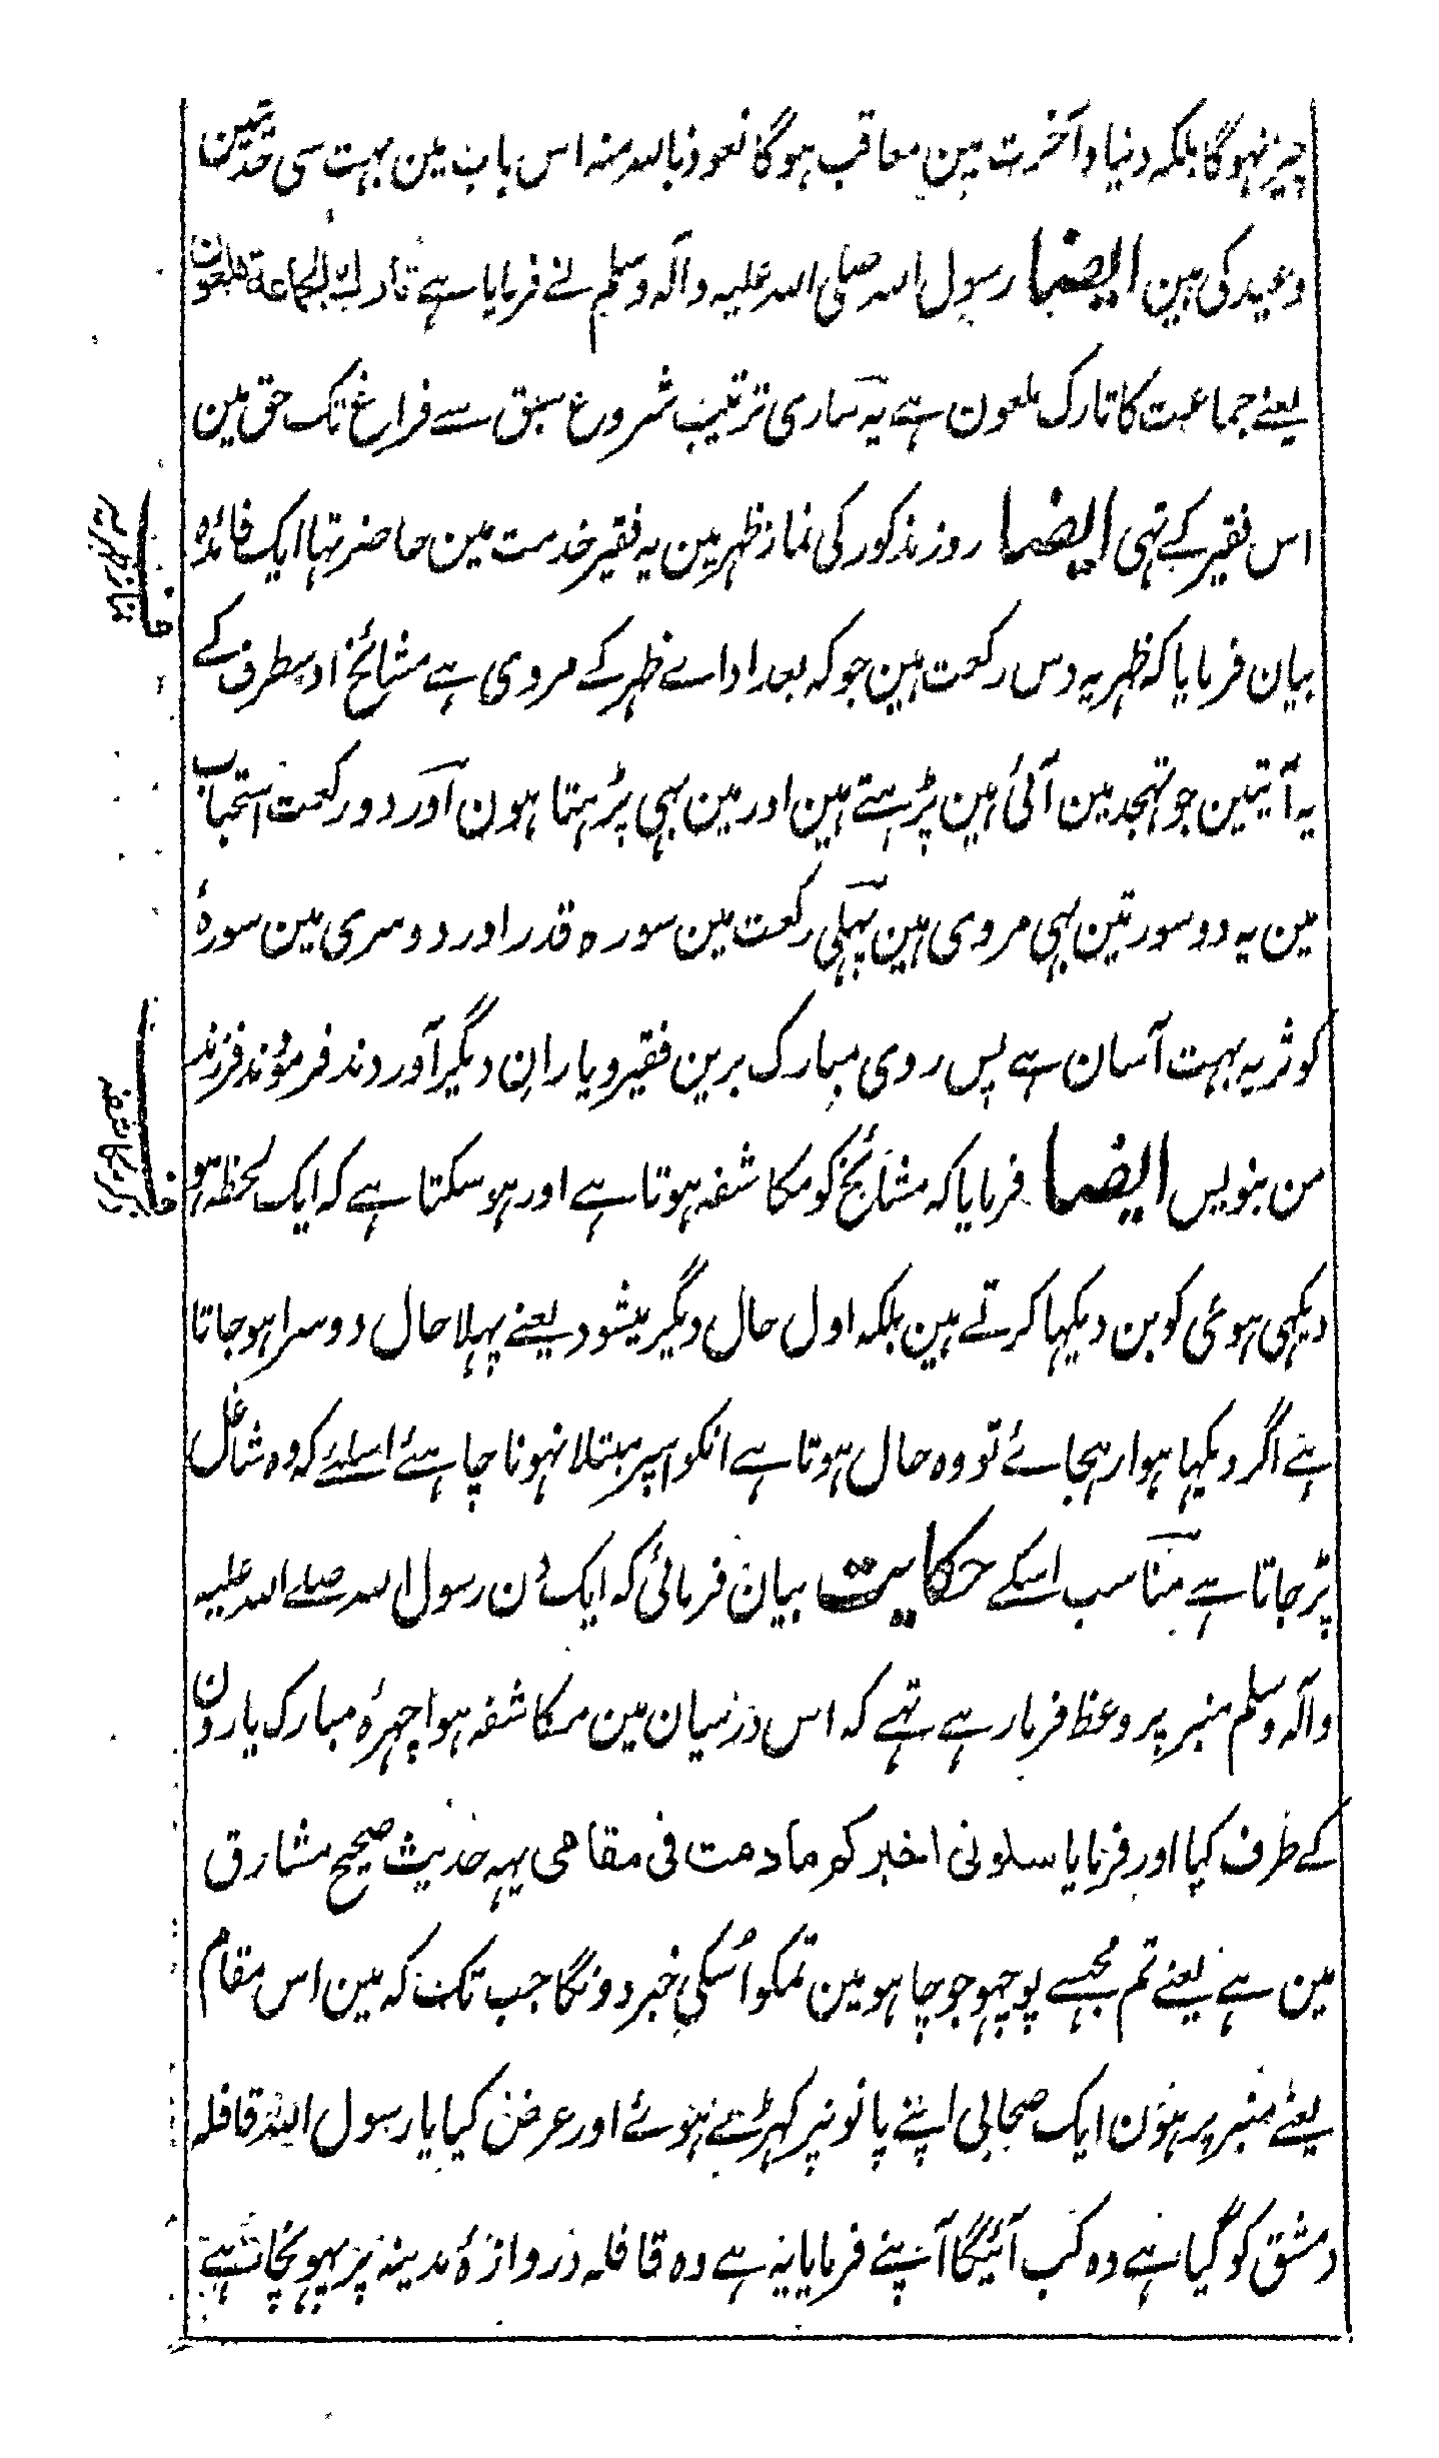 چیز نہوگا بلکہ دنیا و آخرت مین معاقب ہوگا نعوذ باللہ منہ اس باب مین بہت سی حدیثین
وعید کی ہین ایضا رسول اللہ صلی اللہ علیہ وآلہ وسلم نے فرمایا ہے تارک الجماعة ملعون
یعنے جماعت کا تارک ملعون ہے یہ ساری ترتیب شروع سبق سے فراغ تک حق مین
اس فقیر کے تہی ایضا روز مذکور کی نماز ظہر مین یہ فقیر خدمت مین حاضر تہا ایک فائدہ
بیان فرمایا کہ ظہر یہ دس رکعت ہین جو کہ بعد اداے ظہر کے مروی ہے مشائخ اوسطرف کے
یہ آیتین جو تہجد مین آئی ہین پڑہتے ہین اور مین بہی پڑہتا ہون اور دو رکعت استحباب
مین یہ دو سورتین بہی مروی ہین پہلی رکعت مین سورہ قدر اور دوسری مین سورۂ
کوثر یہ بہت آسان ہے پس روی مبارک برین فقیر و یاران دیگر آوردند فرمودند فرزند
من بنویس ایضا فرمایا کہ مشائخ کو مکاشفہ ہوتا ہے اور ہوسکتا ہے کہ ایک لحظہ ہو
دیکہی ہوئی کو بن دیکہا کرتے ہین بلکہ اول حال دیگر میشود یعنے پہلا حال دوسرا ہوجاتا
ہے اگر دیکہا ہوا رہجاے تو وہ حال ہوتا ہے انکو اسپر مبتلا نہونا چاہئے اسلئے کہ وہ شاغل
پڑجاتا ہے مناسب اسکے حکایت بیان فرمائی کہ ایک دن رسول اللہ صلے اللہ علیہ
وآلہ وسلم منبر پر وعظ فرمارہے تہے کہ اس درمیان مین مکاشفہ ہوا چہرۂ مبارک یارون
کے طرف کیا اور فرمایا سلونی اخبرکم ما دمت فی مقامی یہہ حدیث صحیح مشارق
مین ہے یعنے تم مجہسے پوچہو جو چاہو مین تمکو اُسکی خبر دونگا جب تک کہ مین اس مقام
یعنے منبر پر ہون ایک صحابی اپنے پانونپر کہڑے ہوئے اور عرض کیا یا رسول اللہ قافلہ
دمشق کو گیا ہے وہ کب آئیگا آپنے فرمایا یہ ہے وہ قافلہ دروازۂ مدینہ پر پہونچا ہے